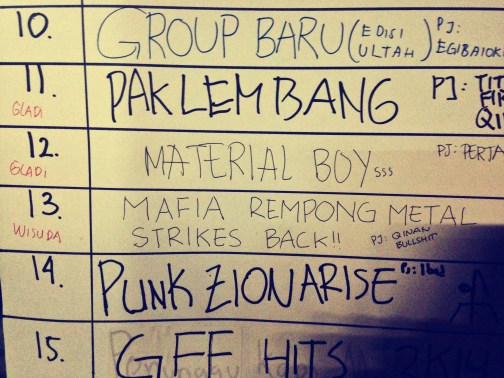 10. GROUP BARU (EDISI ULTAH) PJ: EGIBAIOK
11. GLADI PAK LEMBANG PJ: TIT FI QI
12. GLADI MATERIAL BOYsss PJ: PERTA
13. WISUDA MAFIA REMPONG METAL
STRIKES BACK!! PJ: QINAN BULLSHIT
14. PUNK ZIONARISE PJ:
15. GEE HITS 2K14